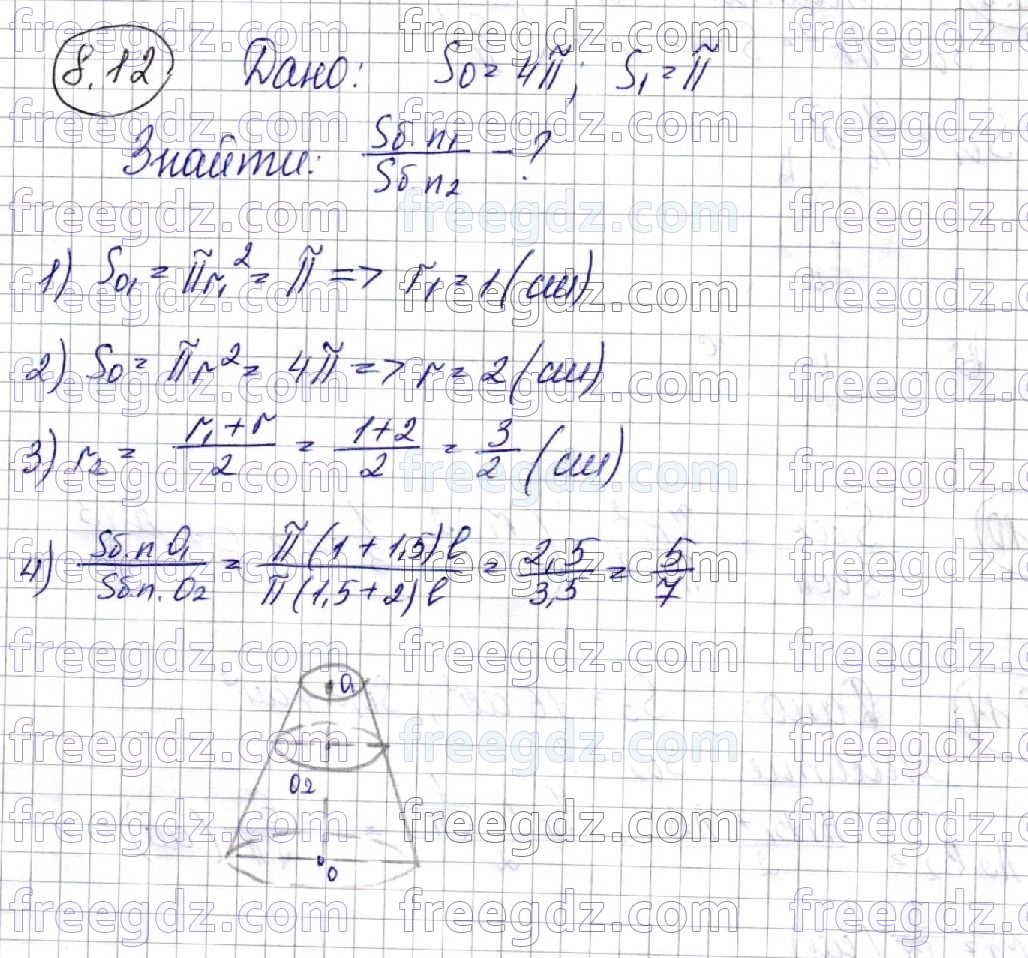 8.12 Дано: S₀ = 4π; S₁ = π
Знайти: Sб.п₁ / Sб п₂ - ?
1) S₀₁ = πr₁² = π => r₁ = 1 (см)
2) S₀ = πr² = 4π => r = 2 (см)
3) r₂ = (r₁ + r) / 2 = (1 + 2) / 2 = 3 / 2 (см)
4) Sб.п O₁ / Sб.п. O₂ = π (1 + 1,5) l / π (1,5 + 2) l = 2,5 / 3,5 = 5 / 7
O₂
O
freegdz.com